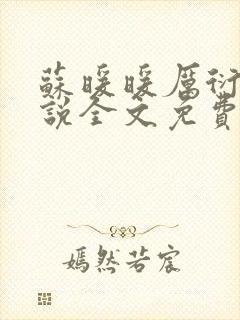 蘇暖暖厲衍
說全文免費
嫣然若宸